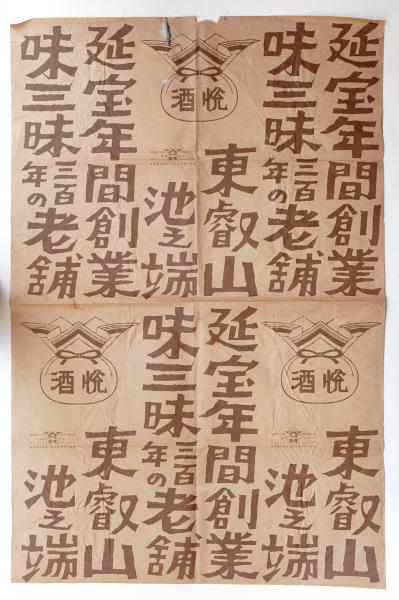 延宝年間創業
味三昧
三百年の老舗
酒悦
東叡山
池之端
延宝年間創業
味三昧
三百年の老舗
酒悦
東叡山
池之端
延宝年間創業
味三昧
三百年の老舗
酒悦
東叡山
池之端